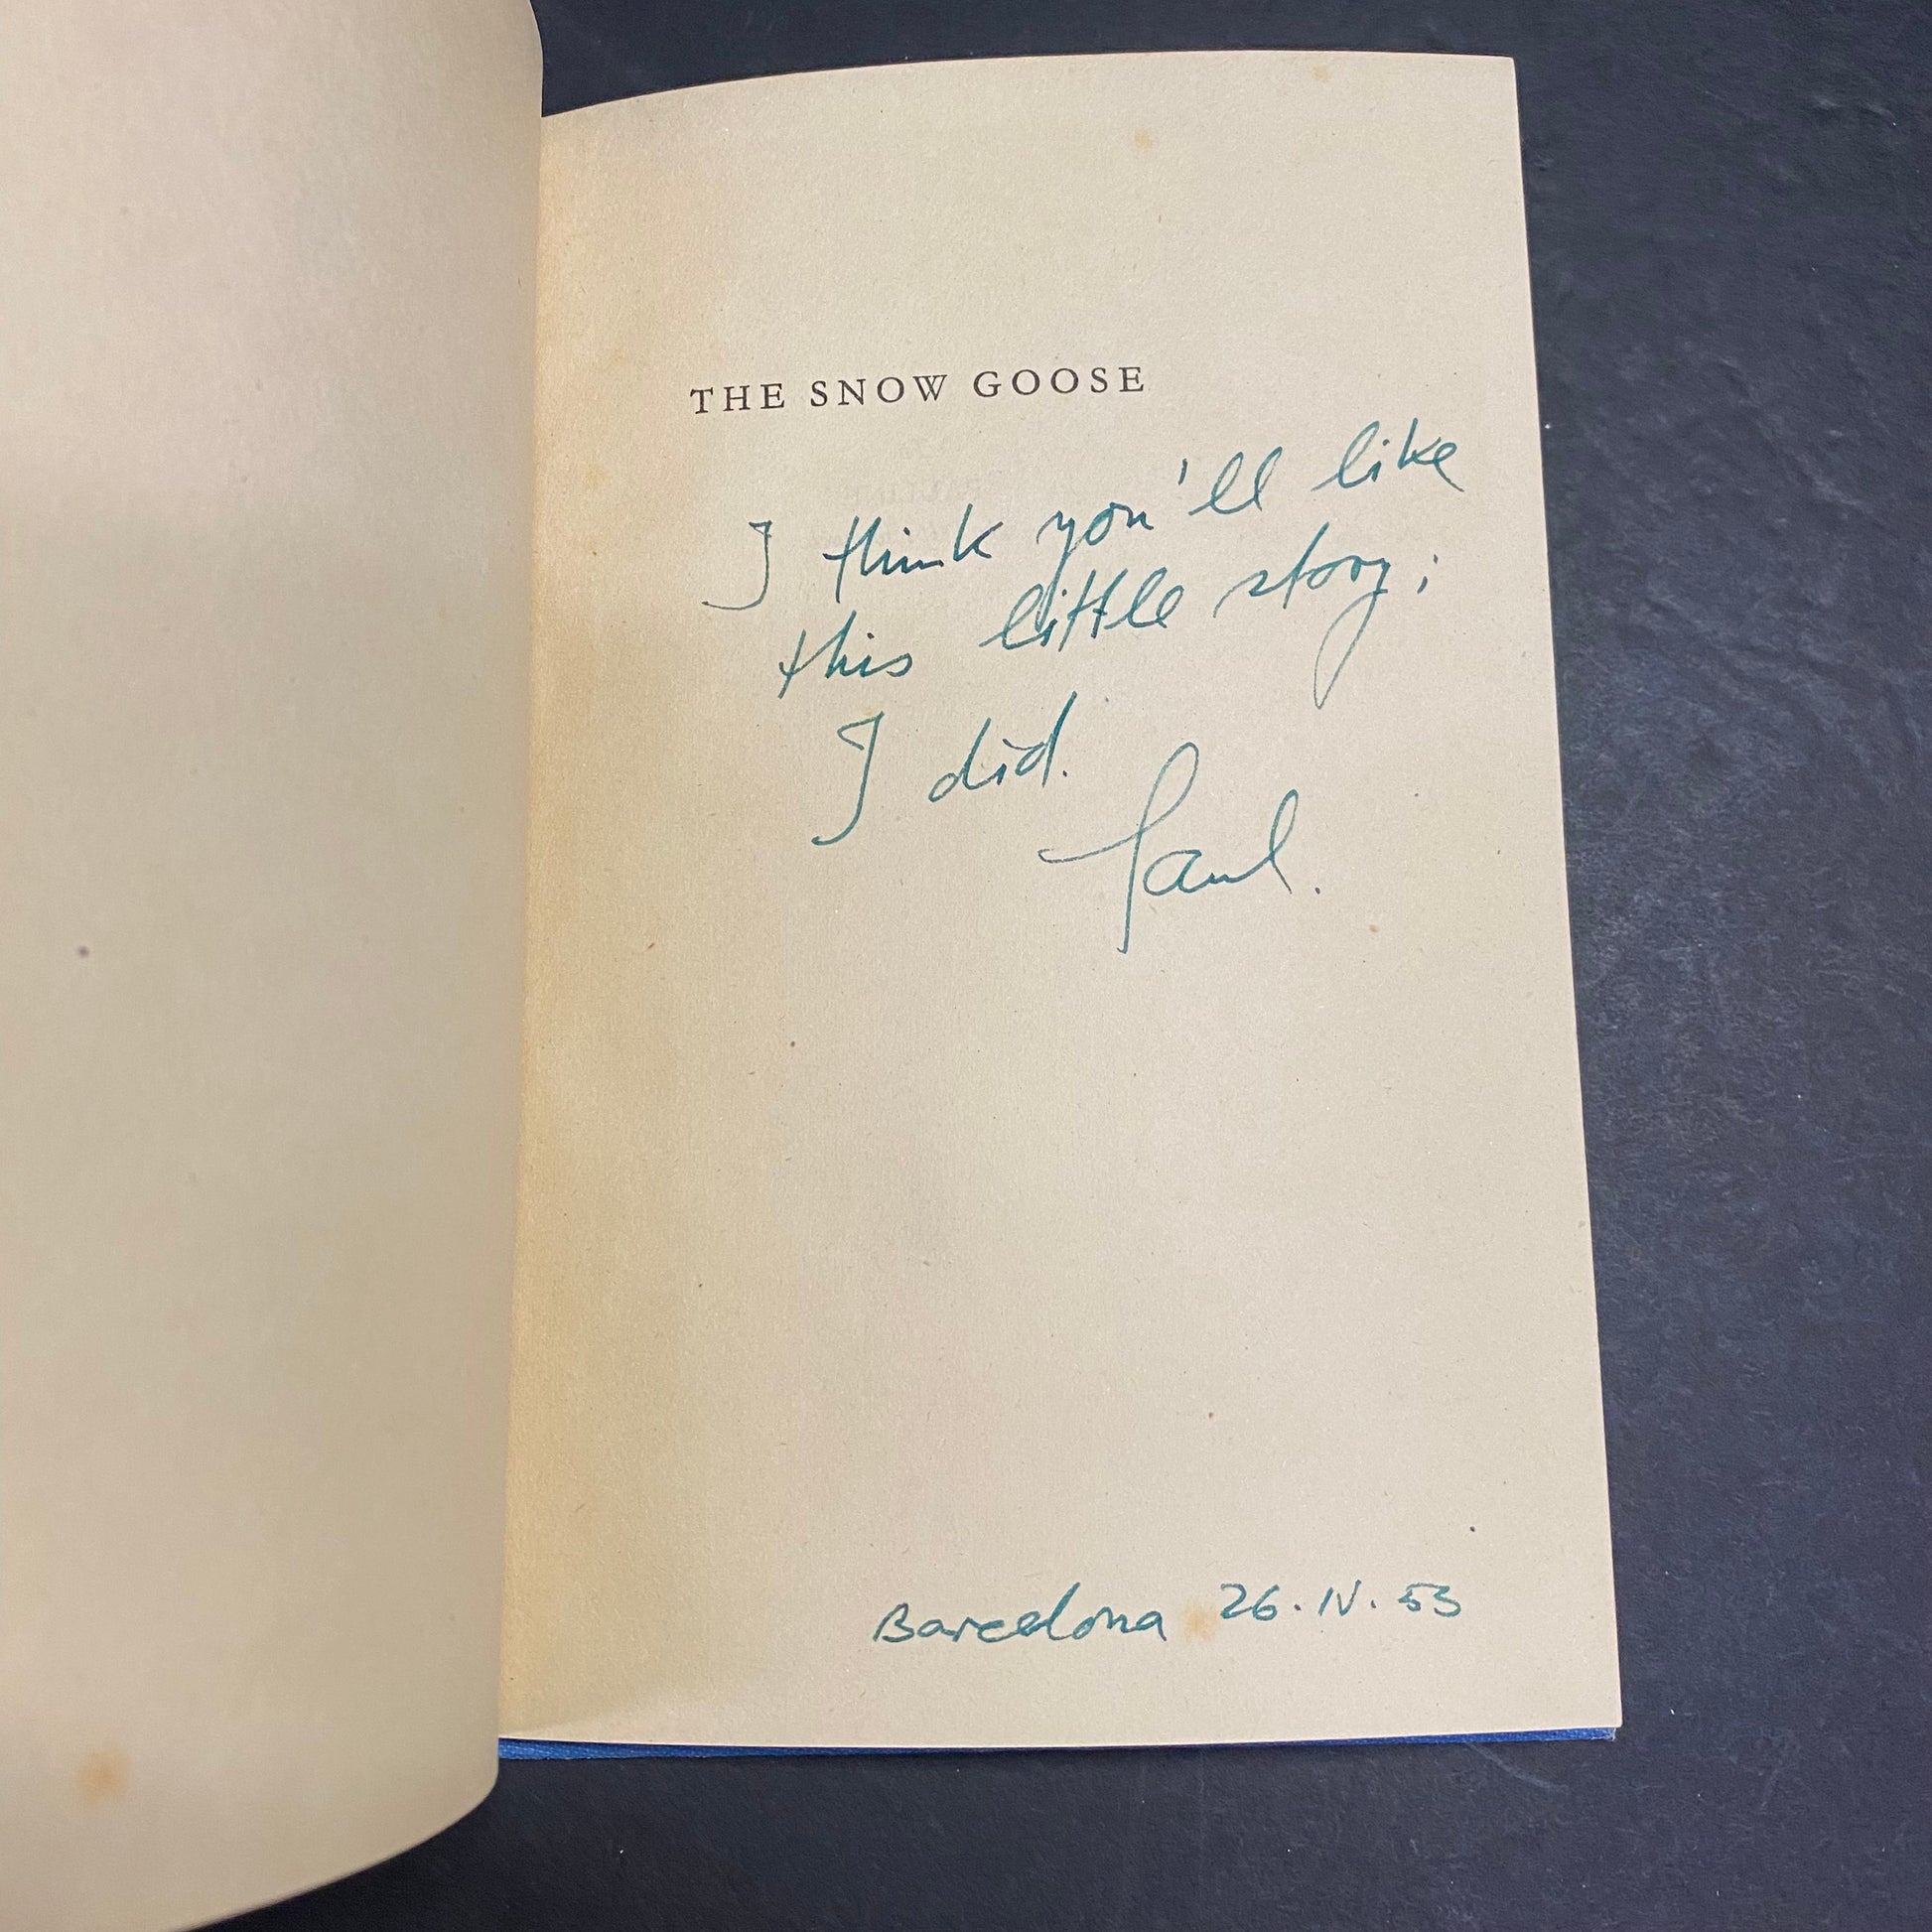 THE SNOW GOOSE
I think you'll like
this little story;
I did.
Paul.
Barcelona 26.IV.53